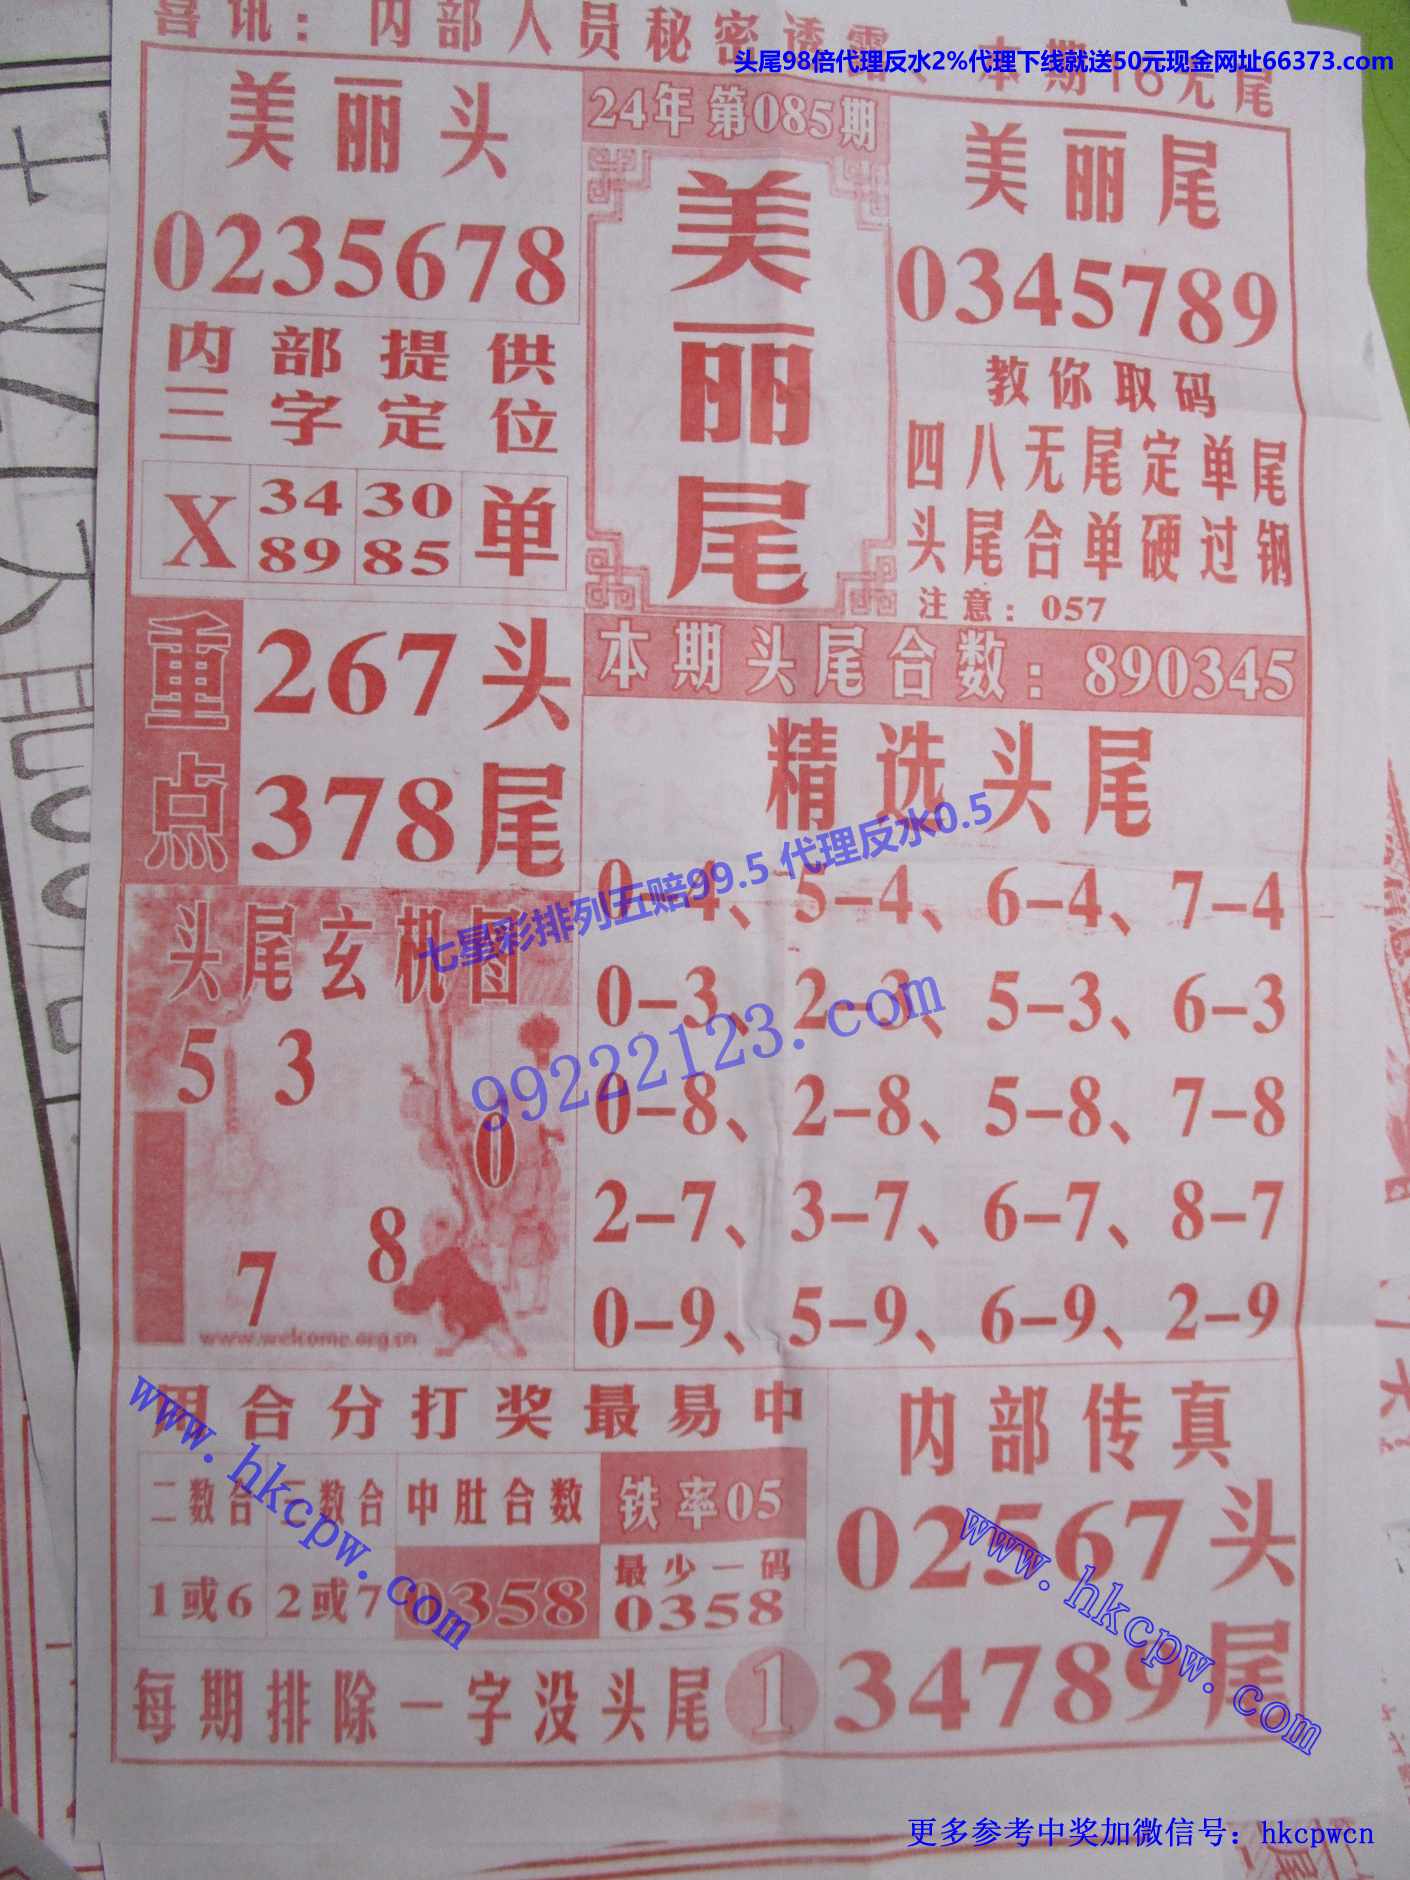 喜讯：内部人员秘密透露、本期16无尾
头尾98倍代理反水2%代理下线就送50元现金网址66373.com
美丽头
0235678
24年第085期
美丽尾
美丽尾
0345789
内部提供
三字定位
X 34 30 单
89 85
教你取码
四八无尾定单尾
头尾合单硬过钢
注意：057
重点
267头
378尾
本期头尾合数：890345
精选头尾
0-4、5-4、6-4、7-4
0-3、2-3、5-3、6-3
0-8、2-8、5-8、7-8
2-7、3-7、6-7、8-7
0-9、5-9、6-9、2-9
七星彩排列五赔99.5 代理反水0.5
99222123.com
头尾玄机图
5 3
0
8
7
www.welcome.org.cn
用合分打奖最易中
二数合 三数合 中肚合数 铁率05
1或6 2或7 0358 最少一码
0358
每期排除一字没头尾 1
内部传真
02567头
34789尾
www.hkcpw.com
www.hkcpw.com
更多参考中奖加微信号：hkcpwcn